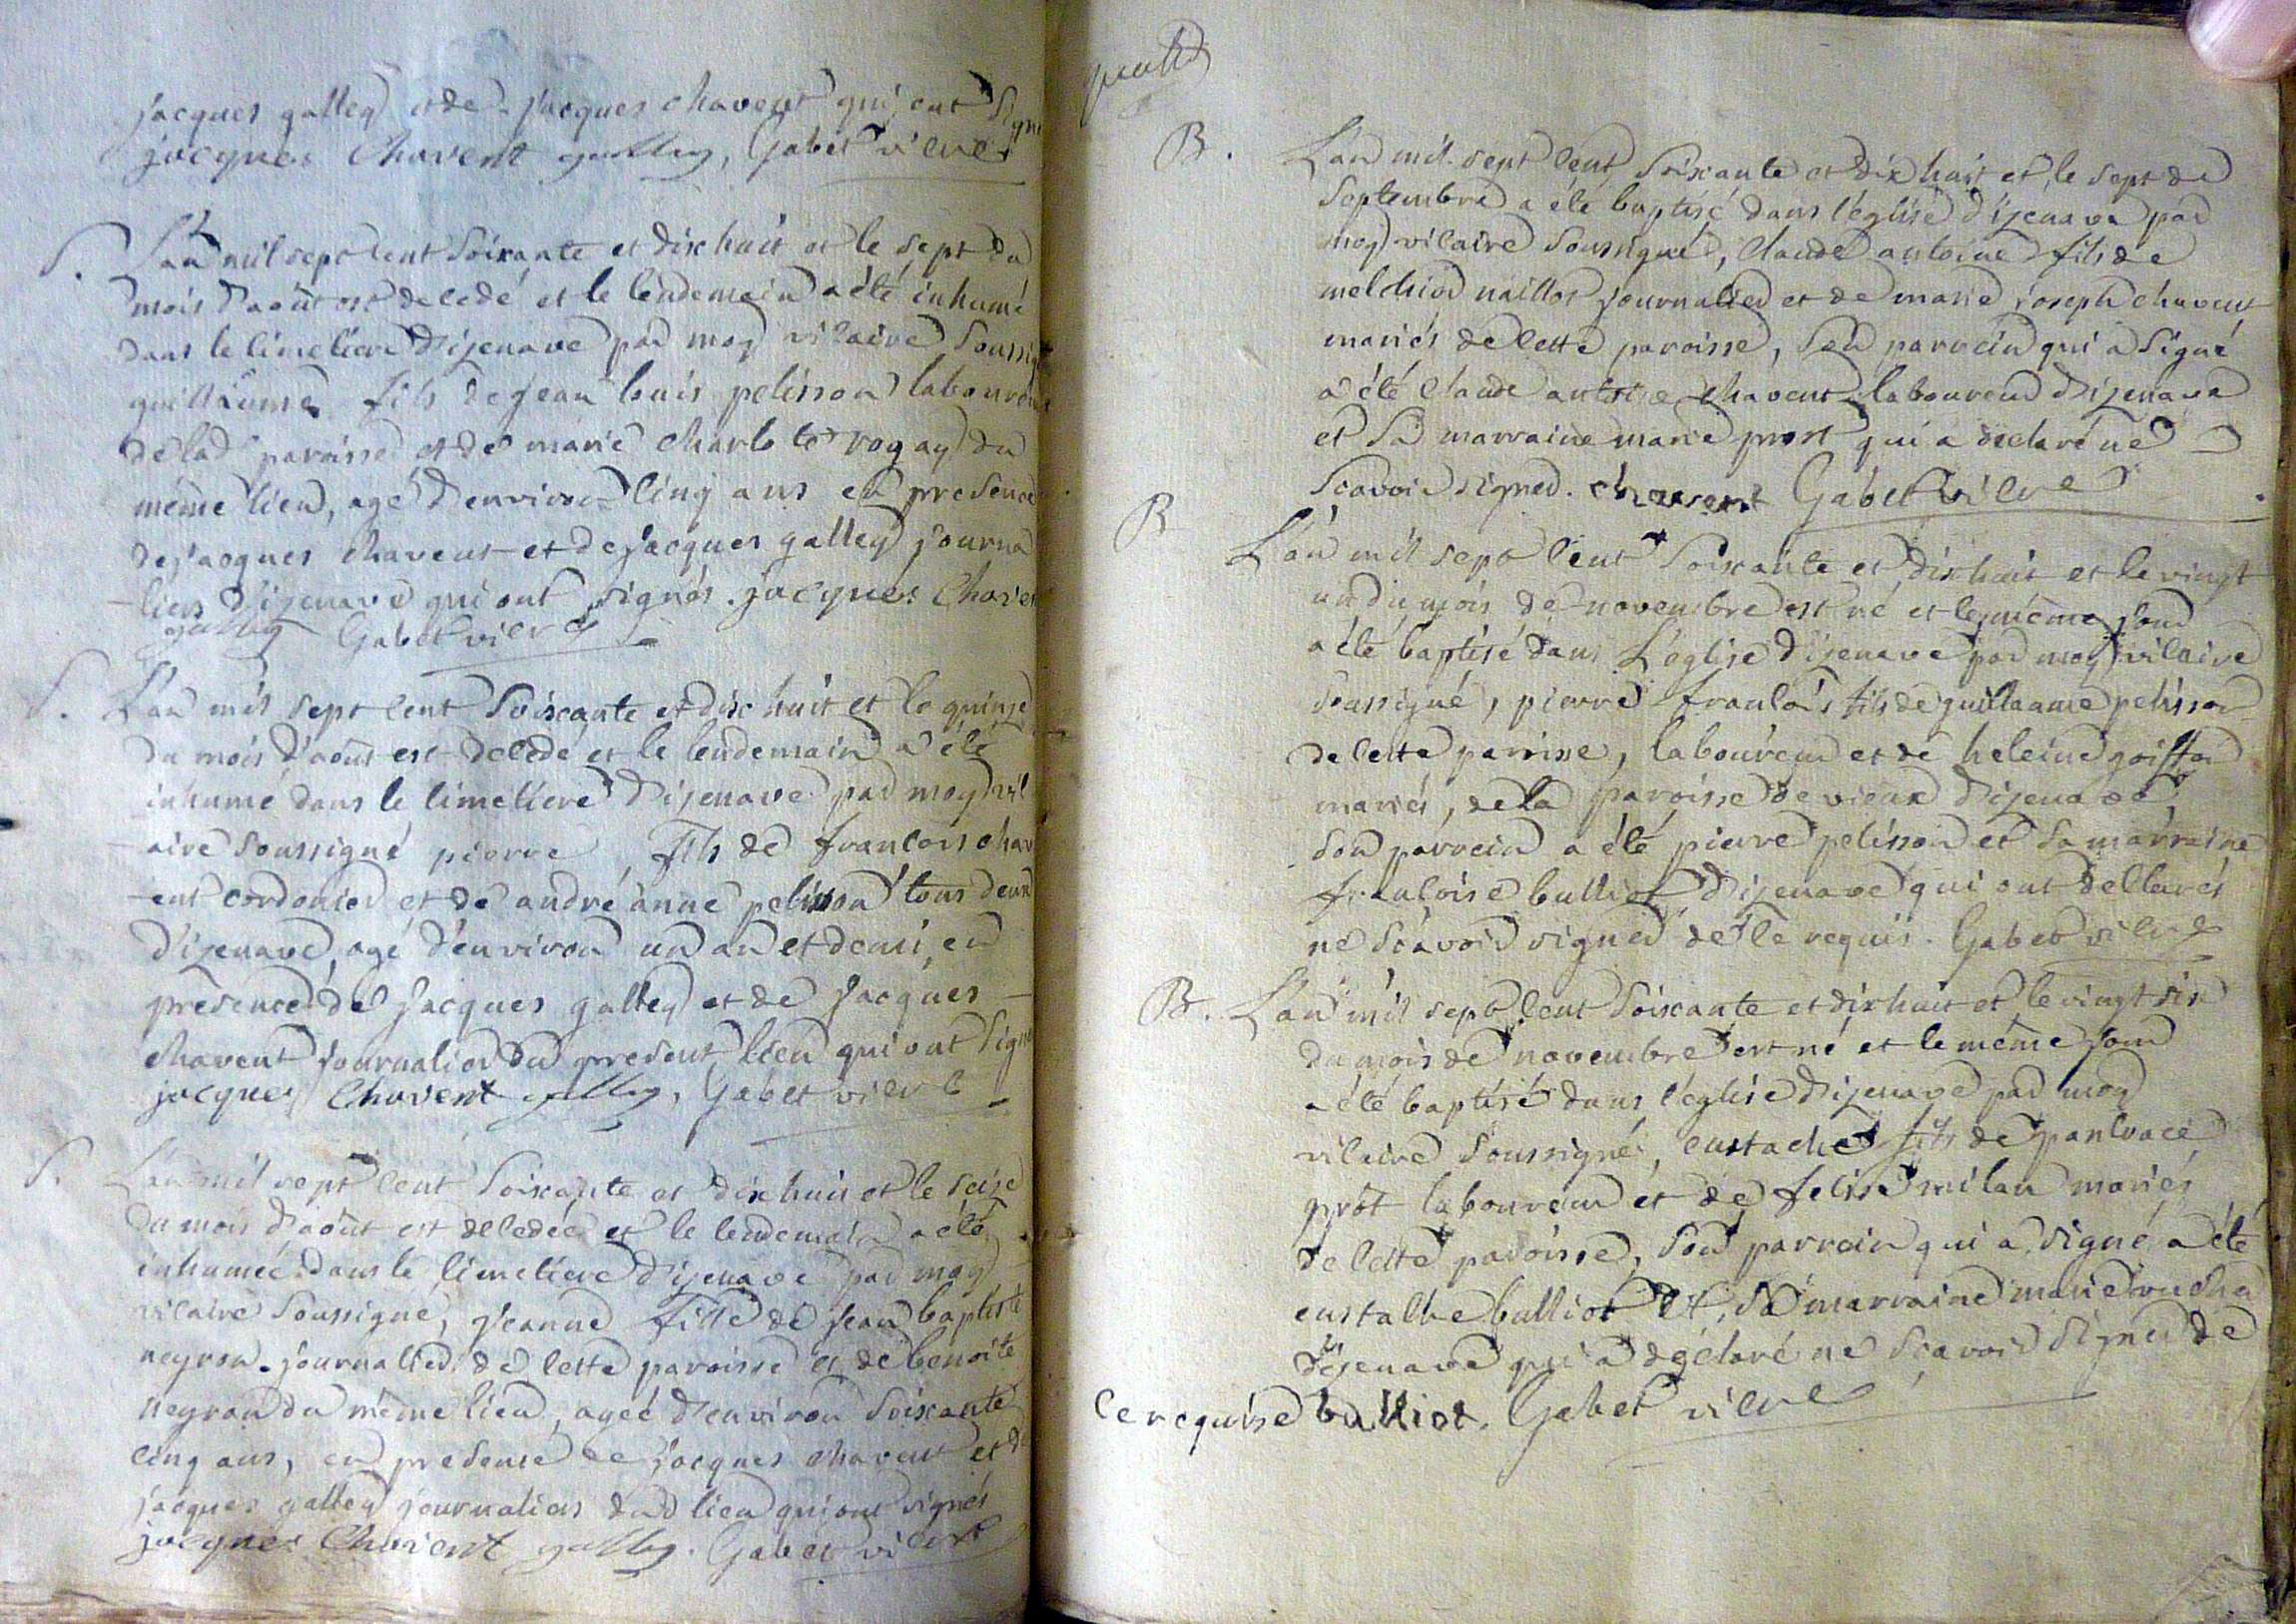 jacques galley et de jacques chavent qui ont signé
jacques Chavent galley, Gabet vicre
S. L'an mil sept cent soixante et dix huit et le sept du
mois d'août est decedé et le lendemain a été inhumé
dans le cimetiere d'ijenave par moy vicaire soussig
guillaume fils de jean louis pelisson laboureur
de lad paroisse et de marie charlote rogay du
même lieu, agé d'environ cinq ans en presence
de jacques chavent et de jacques galley journa
-liers d'ijenave qui ont signés. jacques Chavent
galley Gabet vicre
S. L'an mil sept cent soixante et dix huit et le quinze
du mois d'aout est decedé et le lendemain a été
inhumé dans le cimetiere d'ijenave par moy vic
aire soussigné pierre fils de francois chav
-ent cordonier et de andré anne pelisson tous deux
d'ijenave, agé d'environ un an et demi, en
presence de jacques galley et de jacques
chavent journalier du present lieu qui ont signé
jacques Chavent galley, Gabet vicre
S. L'an mil sept cent soixante et dix huit et le seize
du mois d'août est decedée et le lendemain a été
inhumée dans le cimetiere d'ijenave par moy
vicaire soussigné, jeanne fille de jean baptiste
neyron journalier de cette paroisse et de benoite
neyron du même lieu, ageé d'environ soixante
cinq ans, en presence de jacques chavent et de
jacques galley journaliers dud lieu qui ont signés
jacques Chavent galley. Gabet vicre
B. L'an mil sept cent soixante et dix huit et le sept de
septembre a été baptisé dans l'église d'ijenave par
moy vicaire soussigné, claude antoine fils de
melchior naillot journalier et de marie joseph chavent
mariés de cette paroisse, son parrein qui a signé
a été claude antoine chavent laboureur d'ijenave
et sa marraine marie prost qui a declaré ne
scavoir signer. chavent Gabet vicre
B L'an mil sept cent soixante et dix huit et le vingt
un du mois de novembre est né et le même jour
a été baptisé dans l'église d'ijenave par moy vicaire
soussigné, pierre francois fils de guillaume pelisson
de cette parrisse, laboureur et de heleine goiffon
mariés, de la paroisse de vieux d'ijenave,
son parrein a été pierre pelisson et sa marraine
francoise bulliot d'ijenave qui ont declarés
ne scavoir signer de ce requis. Gabet vicre
B. L'an mil sept cent soixante et dix huit et le vingt six
du mois de novembre est né et le même jour
a été baptisé dans l'église d'ijenave par moy
vicaire soussigné, eustache fils de pancrace
prôt laboureur et de felise milan mariés
de cette paroisse, son parrein qui a signé a été
eustache bulliot et sa marraine marie
d'ijenave qui a declaré ne scavoir signer de
ce requise bulliot. Gabet vicre